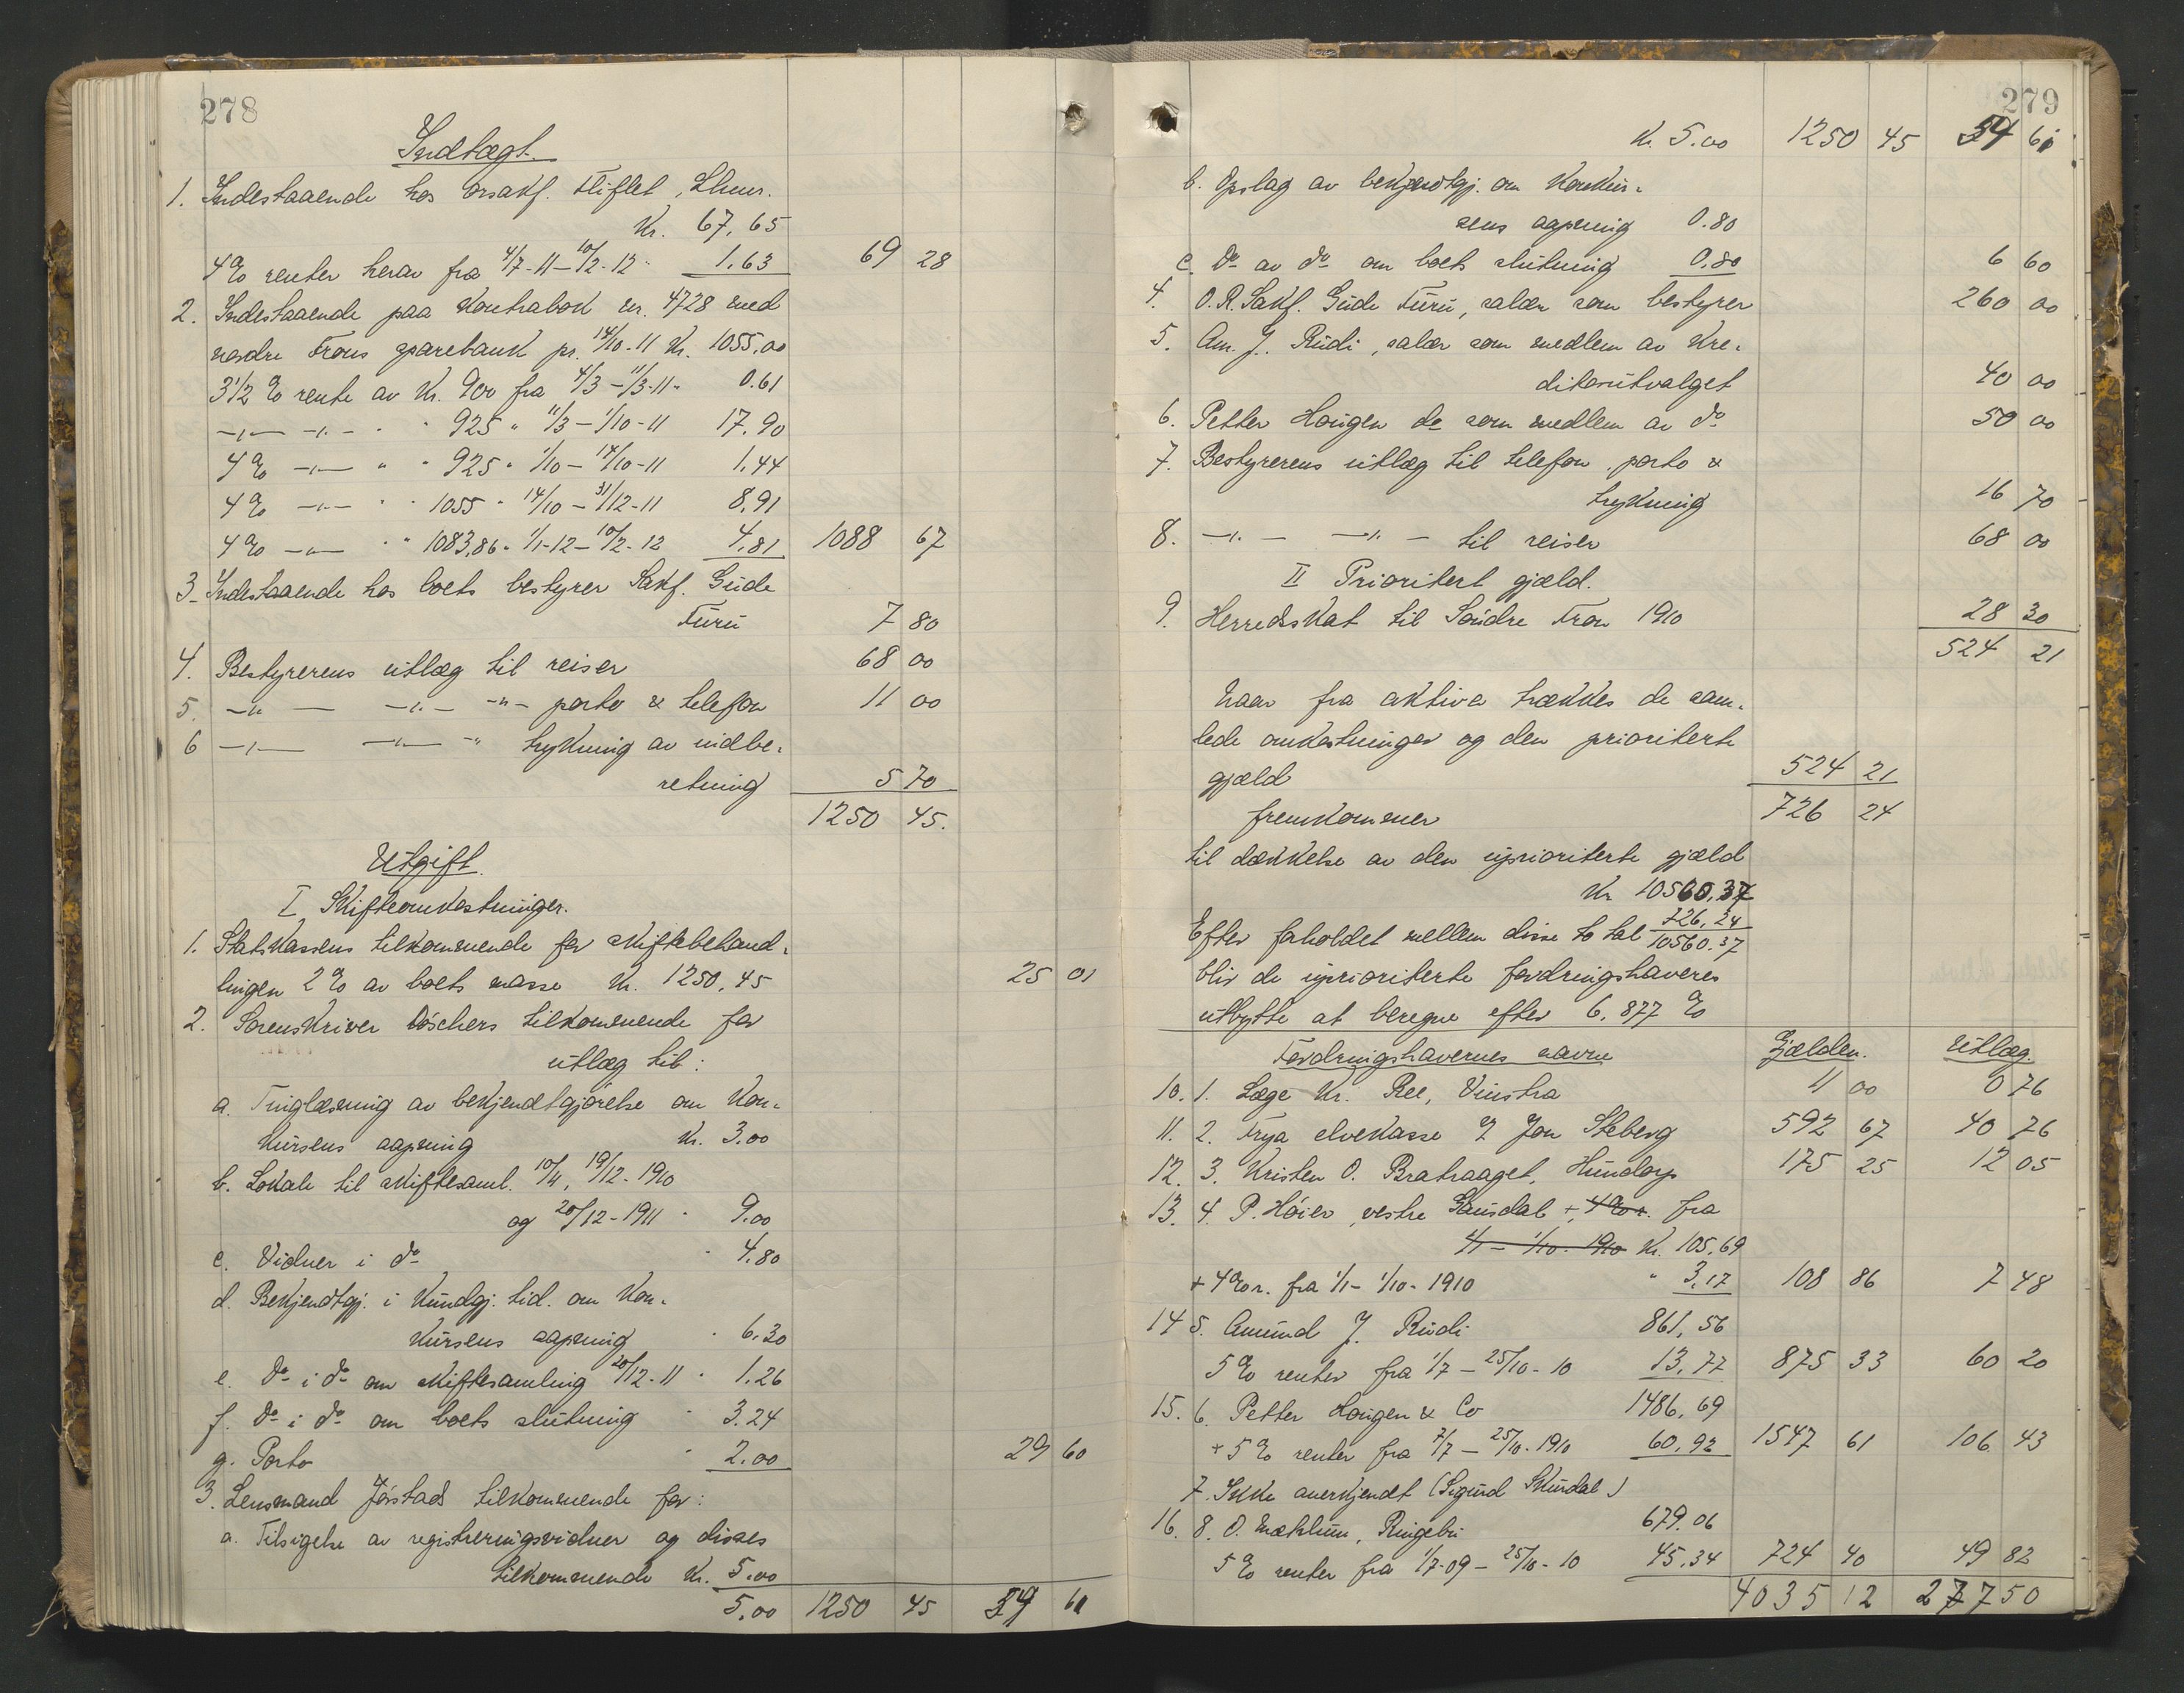 278
Indtægt.
1. Indestaaende hos orsakf. Fliflet, Lhmr.
Kr. 67,65
4% renter herav fra 4/7-11-10/2-12 " 1.63 69 28
2. Indestaaende paa Kontrabok nr. 4728 med
nordre Frons sparebank pr. 14/10-11 Kr. 1055,00
3 1/2 % rente av Kr. 900 fra 4/3-11/3-11 " 0.61
-"- -"- " " 925 " 11/3-1/10-11 17.90
4% -"- " " 925 " 1/10-14/10-11 1,44
4% -"- " " 1055 " 14/10-31/12-11 8,91
4% -"- " " 1083,86 " 1/1-12-10/2-12 4,81 1088 67
3. Indestaaende hos boets bestyrer Sakf. Gude
Furu 7 80
4. Bestyrerens utlæg til reiser 68 00
5. -"- -"- -"- porto & telefon 11 00
6 -"- -"- " trykning av indbe-
retning 5 70
1250 45.
Utgift.
I Skifteomkostninger.
1. Statskassens tilkommende for skiftebehand-
lingen 2% av boets masse Kr. 1250,45 25 01
2. Sorenskriver Döschers tilkommende for
utlæg til:
a. Tinglæsning av bekjendtgjørelse om Kon-
kursens aapning Kr. 3.00
b. Lokale til skiftesaml. 10/11, 19/12-1910
og 20/12-1911 " 9.00
c. Vidner i do " 4.80
d. Bekjendtgj. i Kundgj. tid. om Kon-
kursens aapning " 6.30
e. do i do om skiftesamling 20/12-11 " 1.26
f. do i do om boets slutning " 3.24
g. Porto " 2.00 29 60
3. Lensmand Jörstads tilkommende for:
a. Tilsigelse av registreringsvidner og disses
tilkommende Kr. 5.00
5,00 1250 45 54 61
279
Kr. 5.00 1250 45 54 61
b. Opslag av bekjendtgj. om Konkur-
sens aapning 0.80
c. Do av do om boets slutning 0,80 6 60
4. O.R.Sakf. Gude Furu, salær som bestyrer 260 00
5. Am. J. Rudi, salær som medlem av Kre-
ditorutvalget 40 00
6. Petter Hougen do som medlem av do 50 00
7. Bestyrerens utlæg til telefon, porto &
trykning 16 70
8. -"- -"- til reiser 68 00
II Prioritert gjæld.
9. Herredskat til Søndre Fron 1910 28 30
524 21
Naar fra aktiva trækkes de sam-
lede omkostninger og den prioriterte
gjæld 524 21
fremkommer 726 24
til dækkelse av den uprioriterte gjæld
Kr 10560,37
Efter forholdet mellem disse to tal 726,24/10560.37
blir de uprioriterte fordringshaveres
utbytte at beregne efter 6,877 %
Fordringshavernes navne Gjælden. Utlæg.
10. 1. Læge Kr. Ree, Vinstra 11 00 0 76
11. 2. Frya elvekasse v/ Jon Steberg 592 67 40 76
12. 3. Kristen O. Brateraaget, Hundorp 175 25 12 05
13. 4. P. Höier, vestre Gausdal + 4% r. fra
1/1-1/10-1910 Kr. 105,69
+ 4% r. fra 1/1-1/10-1910 " 3,17 108 86 7 48
14 5. Amund J. Rudi 861,56
5% renter fra 1/7-25/10-10 13,77 875 33 60 20
15. 6. Petter Hougen & Co 1486,69
+ 5% renter fra 7/7-25/10-1910 60,92 1547 61 106 43
7. Ikke anerkjendt (Sigurd Skurdal)
16. 8. O. Mæhlum, Ringebu 679.06
5% renter fra 1/7-09-25/10-10 45.34 724 40 49 82
4035 12 277 50